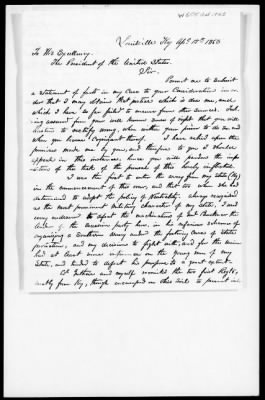 Louisville Ky Apl. 10th 1863
To His Excellency
The President of the United States
Sir
Permit me to submit
a statement of facts in my case to your Consideration in or-
der that I may obtain that justice which is due me, and
which I have so far failed to receive from other sources. Feel-
ing assured from your well known sense of right that you will
hasten to rectify wrong, when within your power to do so, and
when you become cognizant thereof. I have relied upon the
promises made me by you, and therefore to you I should
appeal in this instance; hence you will pardon the impo-
sition of the task of the perusal of this lengthy
I was the first to enter the army from my state (Ky)
in the commencement of this war, and that too when she had
determined to adopt the policy of Neutrality. Always recognized
as the most prominent military character of my state, I used
every endeavor to defeat the machinations of Genl Buckner the
leader of the Secession party here, in his nefarious scheme of
organizing a Southern Army under the fostering care of States
protection, and my decisions to fight with, and for the union
had at least some influence on the young men of my
State, and tended to defeat his purpose to a great extent.
Col Guthrie and myself recruited the two first Regts,
mostly from Ky, though encamped on Ohio soil to prevent in-